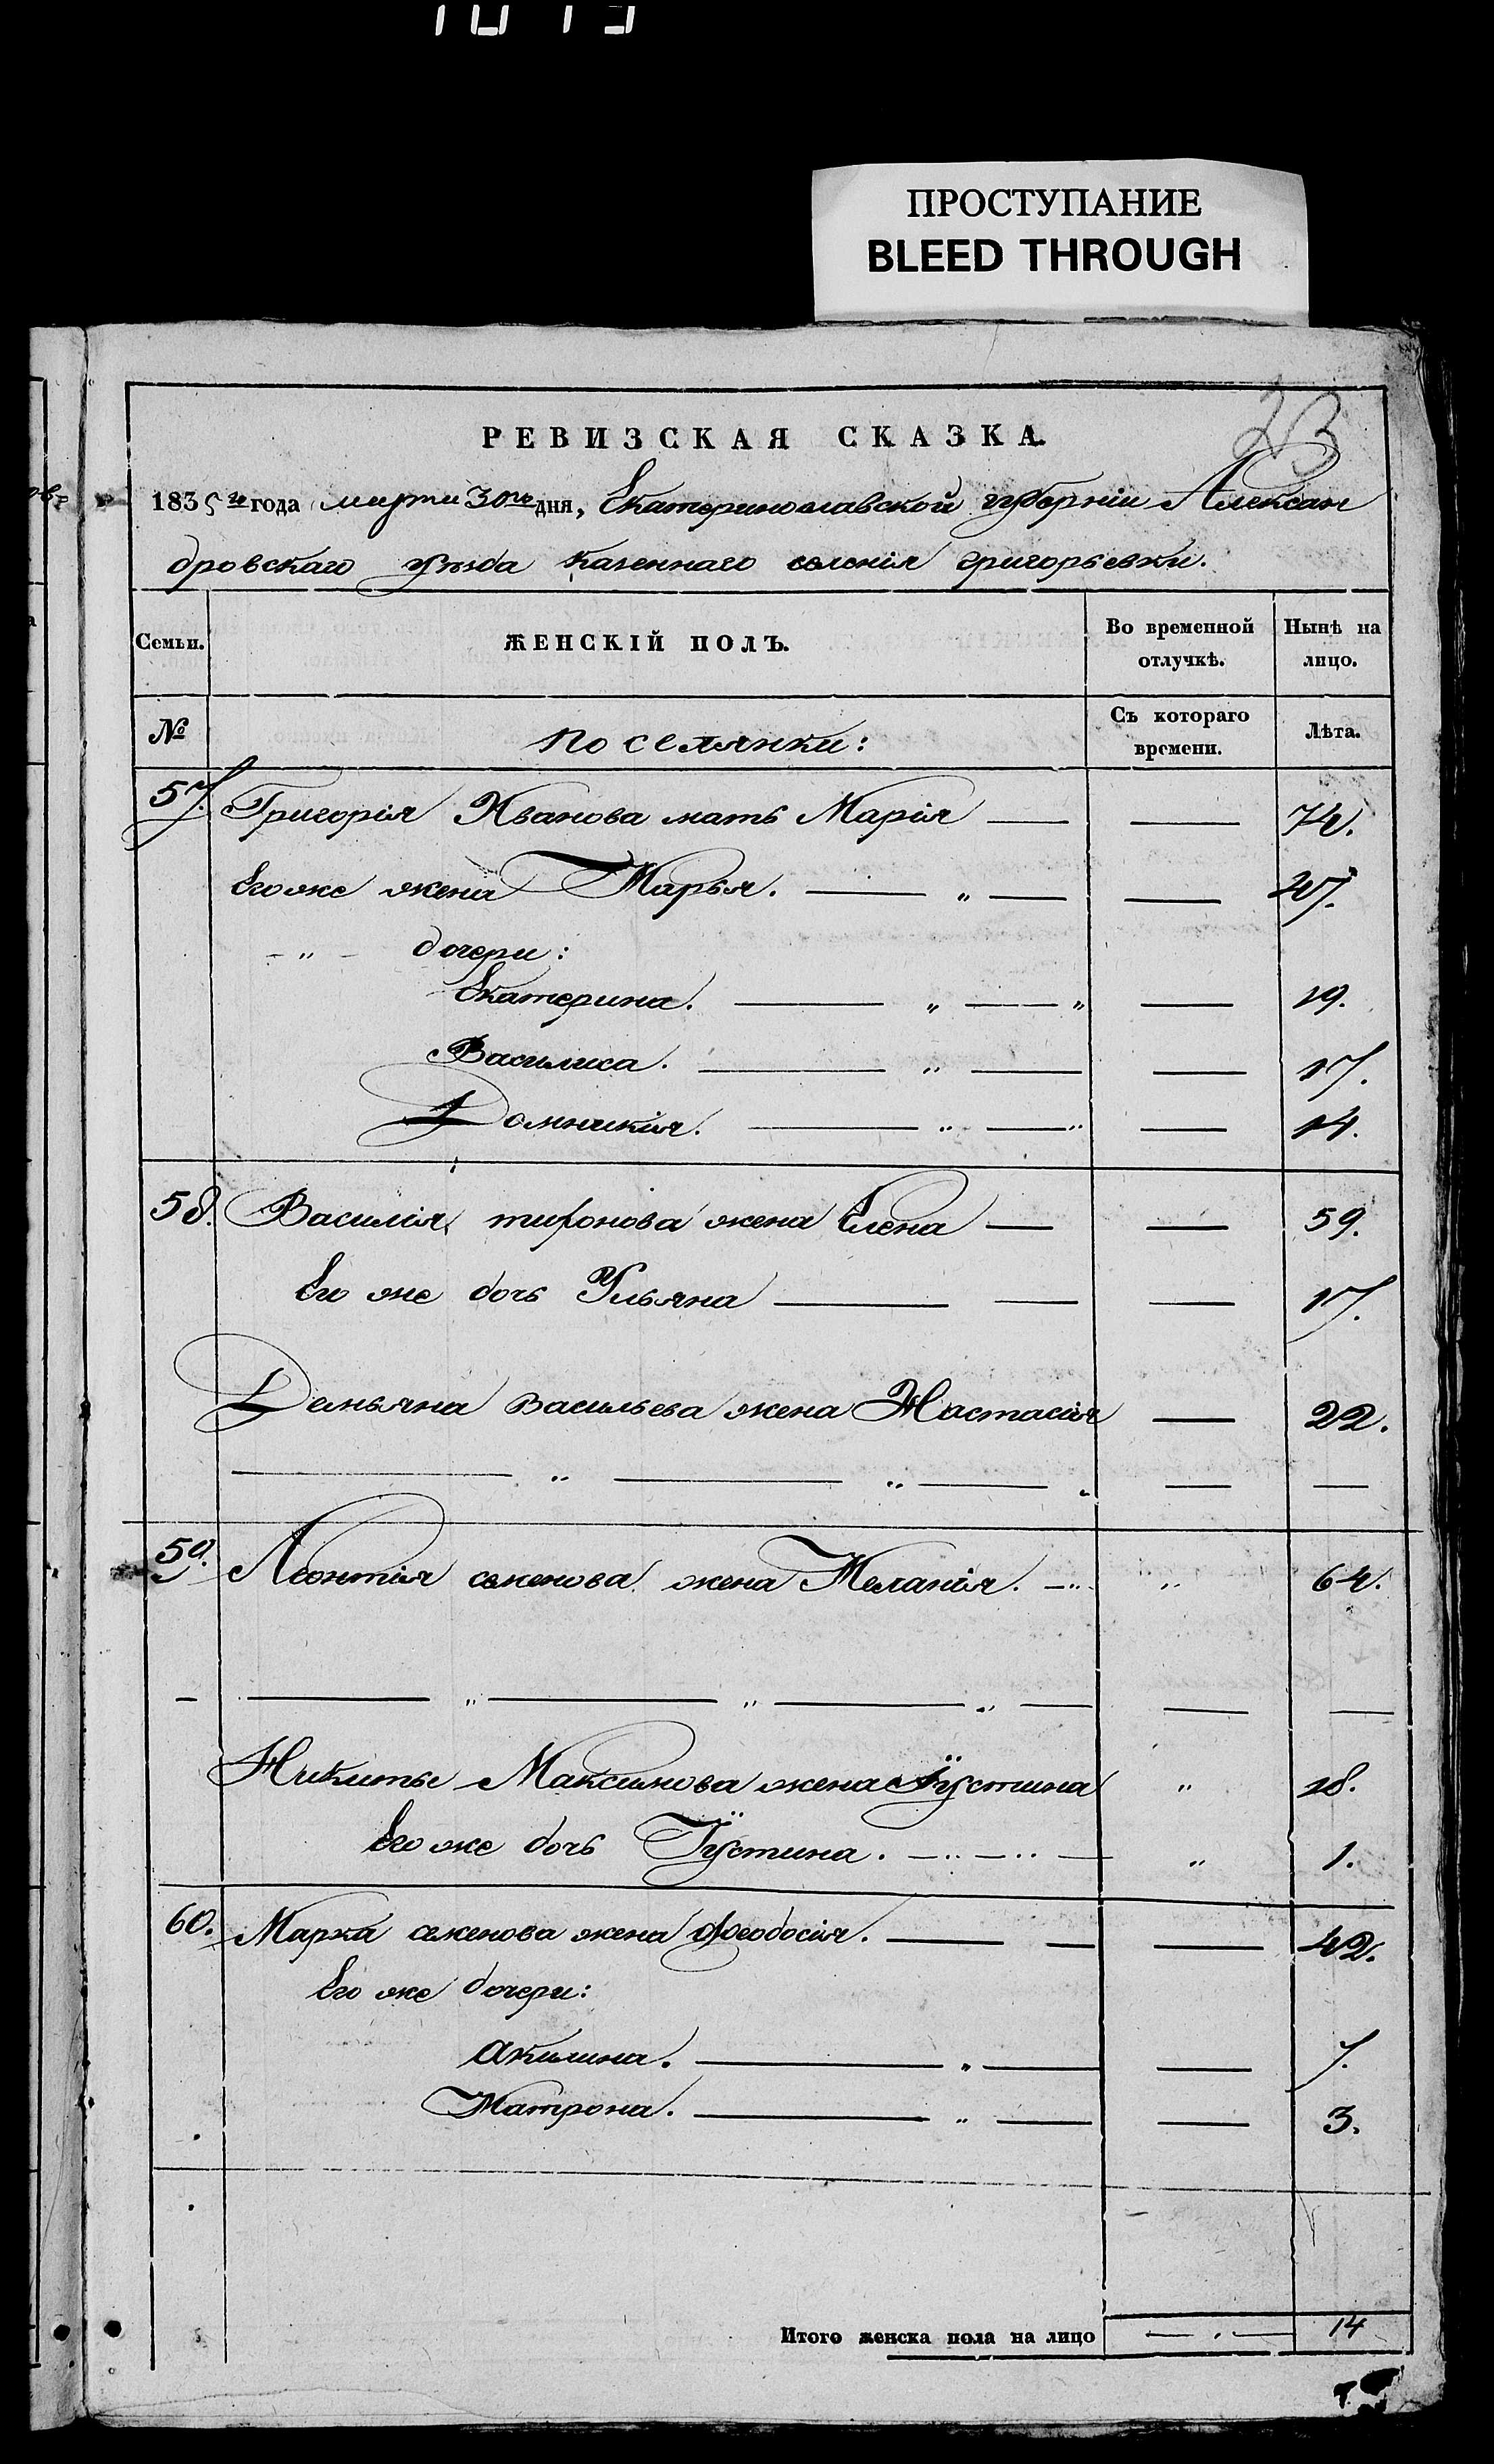 ПРОСТУПАНИЕ
BLEED THROUGH
РЕВИЗСКАЯ СКАЗКА.
1835го года марта 30го дня, Екатеринославской губерніи Алексан
дровскаго уѣзда казеннаго селенія григорьевки.
Семьи. ЖЕНСКІЙ ПОЛЪ. Во временной отлучкѣ. Нынѣ на лицо.
№ поселянки: Съ котораго времени. Лѣта.
57. Григорія Иванова мать Марія — — 74.
Его же жена Марья. — „ — — 47.
- „ - дочери:
Екатерина. — „ — „ — 19.
Василиса. — „ — — 17.
Домникія. — „ — „ — 14.
58. Василія тифонова жена Елена — — 59.
Его же дочь Ульяна — — — 17.
Демьяна Васильева жена Настасія — 22.
— „ — „ — „ — —
59. Леонтія семенова жена Меланія. — „ „ 64.
— — „ — „ — „ — — —
Никиты Максимова жена Іустина „ 18.
Его же дочь Іустина. — „ — „ — „ 1.
60. Марка семенова жена Феодосія. — — — 42.
Его же дочери:
Акилина. — „ — — 7.
Матрона. — „ — — 3.
Итого женска пола на лицо — „ — 14